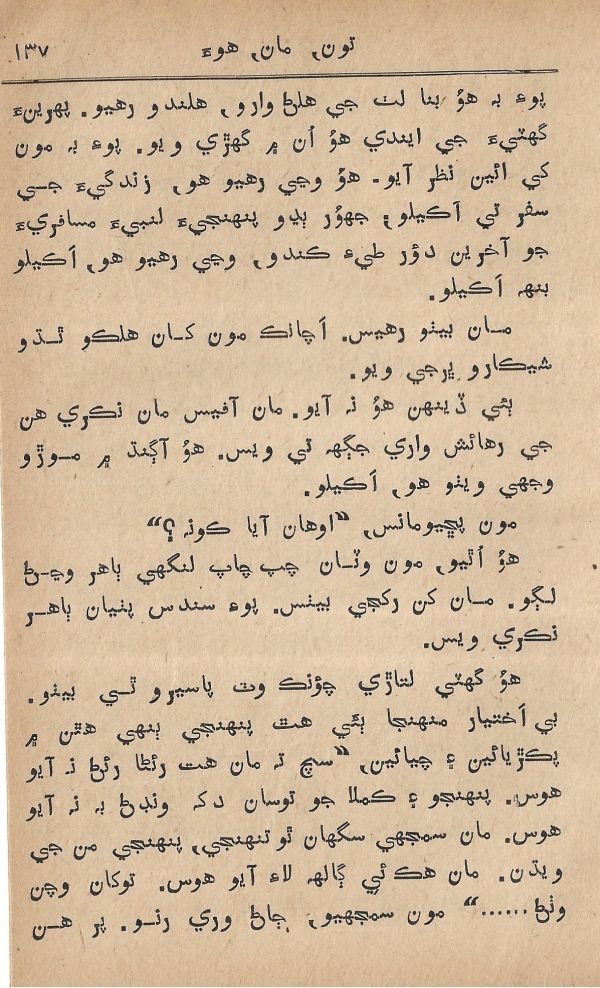 تون, مان, هوءَ ١٣٧
پوءِ به هوُ بنا لٺ جي هلڻ وارو, هلندو رهيو. پهرينءَ
گهٽيءَ جي ايندي هوُ اُن ۾ گهڙي ويو. پوءِ به مون
کي ائين نظر آيو. هوُ وڃي رهيو هو, زندگيءَ جي
سفر تي اڪيلو؛ جهوُر ٻڍو پنهنجيءَ لنبيءَ مسافريءَ
جو آخرين دوُر طيءِ ڪندو, وڃي رهيو هو, اَڪيلو
بنهہ اَڪيلو.
مان بيٺو رهيس. اَچانڪ مون کان هلڪو ٿڌو
شيڪارو ڀرجي ويو.
ٻئي ڏينهن هوُ نہ آيو. مان آفيس مان نڪري هن
جي رهائش واري جڳهہ تي ويس. هوُ آڳنڌ ۾ موڙو
وجهي ويٺو هو, اَڪيلو.
مون پڇيومانس, “اوهان آيا ڪونہ؟“
هوُ اُٿيو, مون وٽان چپ چاپ لنگهي ٻاهر وڃڻ
لڳو. مان کن رکجي بيٺس. پوءِ سندس پٺيان ٻاهر
نڪري ويس.
هوُ گهٽي لتاڙي چوُنڪ وٽ پاسيرو ٿي بيٺو.
بي اَختيار منهنجا ٻئي هٿ پنهنجي ٻنهي هٿن ۾
پڪڙيائين ۽ چيائين, “سچ تہ مان هت رئڻا رئڻ نہ آيو
هوس. پنهنجو ۽ ڪملا جو توسان دک ونڊڻ بہ نہ آيو
هوس. مان سمجهي سگهان ٿو تنهنجي, پنهنجي من جي
ويڌن. مان هڪ ئي ڳالهہ لاءِ آيو هوس. توکان وچن
وٺڻ......“ مون سمجهيو, ڄاڻ وري رنو. پر هن